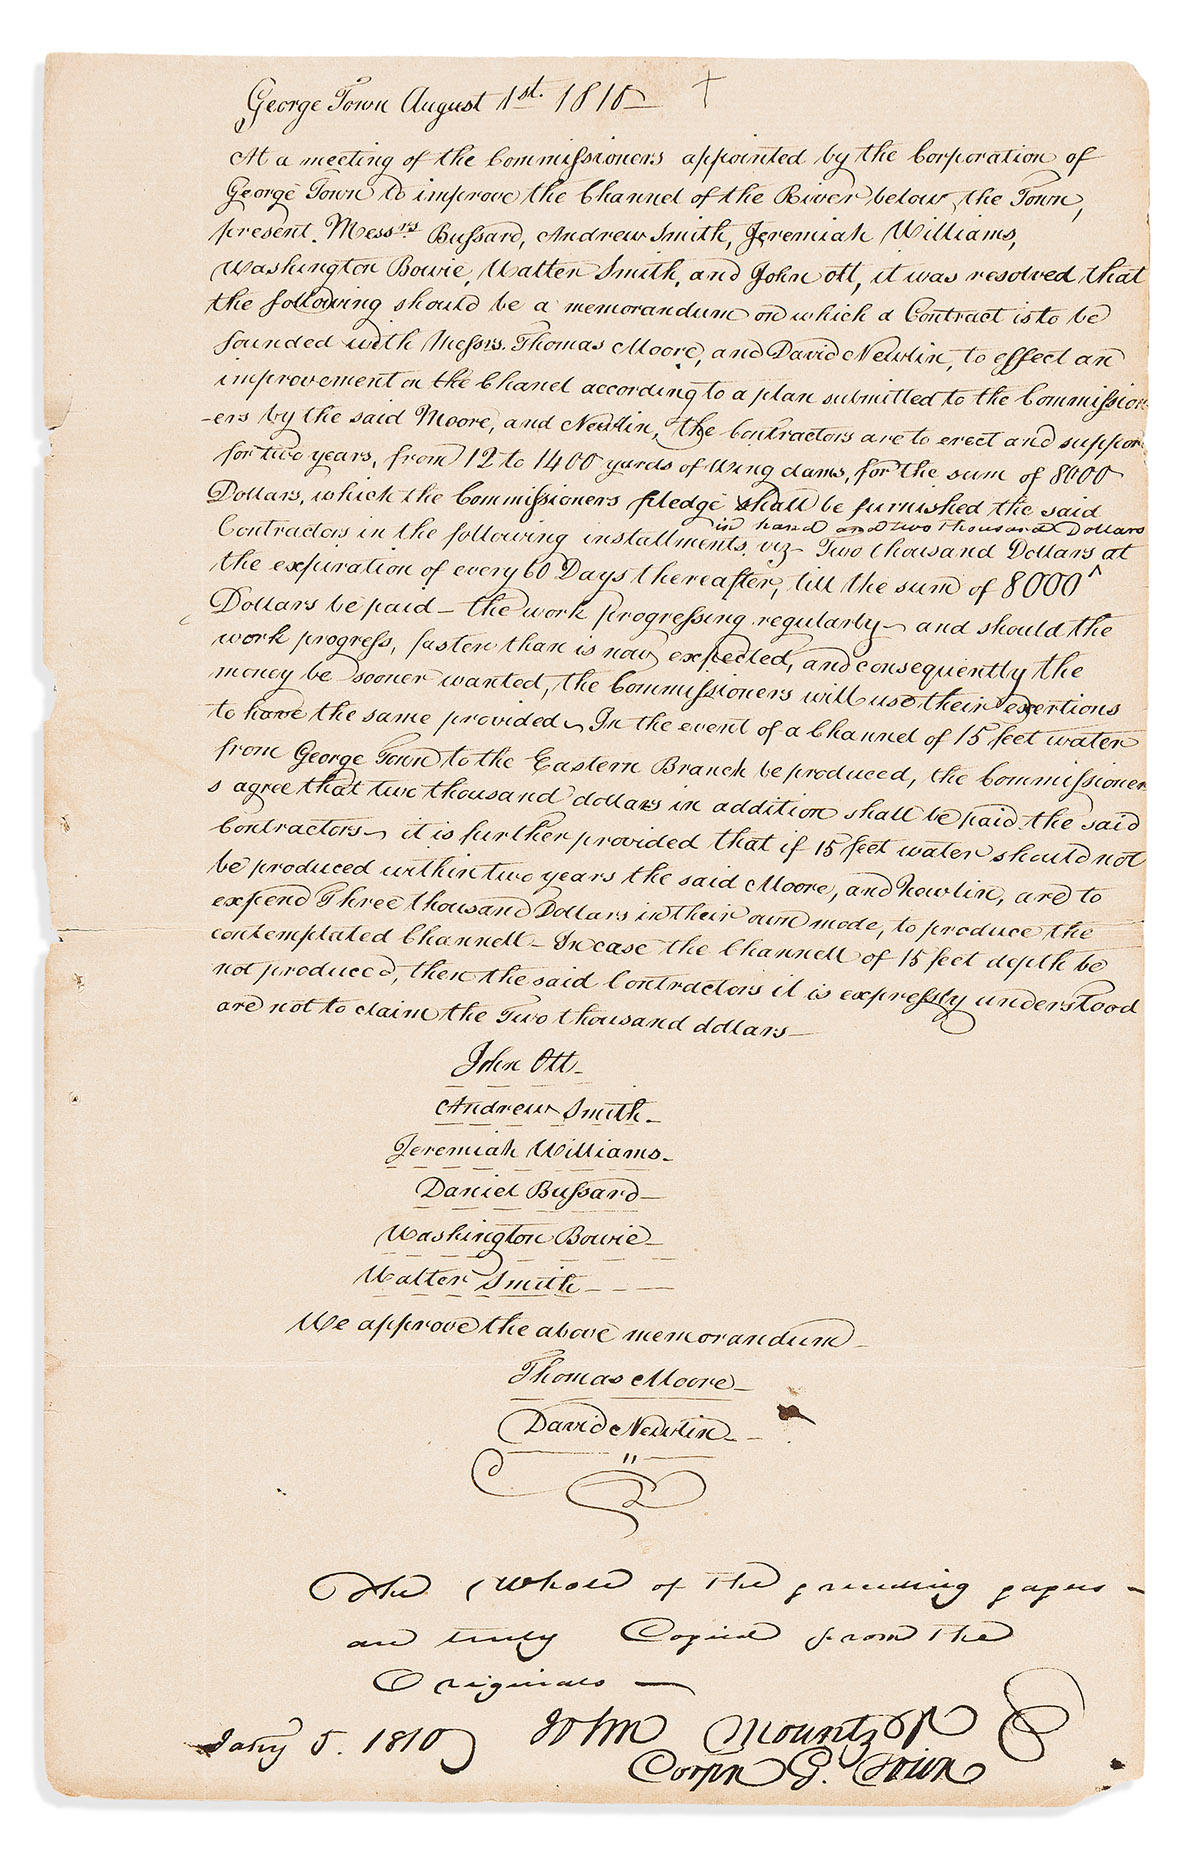 George Town August 1st. 1810 —
At a meeting of the Commissioners appointed by the Corporation of
George Town to improve the Channel of the River below the Town,
present. Messrs Bussard, Andrew Smith, Jeremiah Williams,
Washington Bowie, Walter Smith, and John Ott, it was resolved that
the following should be a memorandum on which a Contract is to be
founded with Messrs. Thomas Moore, and David Newlin, to effect an
improvement on the Chanel according to a plan submitted to the Commission
-ers by the said Moore, and Newlin, the Contractors are to erect and suppor
for two years, from 12 to 1400 yards of Wing dams, for the sum of 8000
Dollars, which the Commissioners pledge shall be furnished the said
in hand and two thousand Dollars
Contractors in the following installments viz- Two thousand Dollars at
the expiration of every 60 Days thereafter, till the sum of 8000 ^
Dollars be paid – the work progressing regularly – and should the
work progress, faster than is now expected, and consequently the
money be sooner wanted, the Commissioners will use their exertions
to have the same provided – In the event of a Channel of 15 feet water
from George Town to the Eastern Branch be produced, the Commissioner
s agree that two thousand dollars in addition shall be paid the said
Contractors – it is further provided that if 15 feet water should not
be produced within two years the said Moore, and Newlin, are to
expend Three thousand Dollars in their own mode, to produce the
contemplated Channell – In case the Channell of 15 feet depth be
not produced, then the said Contractors it is expressly understood
are not to claim the Two thousand dollars —
John Ott –
Andrew Smith –
Jeremiah Williams –
Daniel Bussard –
Washington Bowie –
Walter Smith – – –
We approve the above memorandum –
Thomas Moore –
David Newlin – –
The Whole of the preceeding papers –
are truly Copied from the
Originals —
Jany 5. 1810 John Mountz
Corpn G. Town